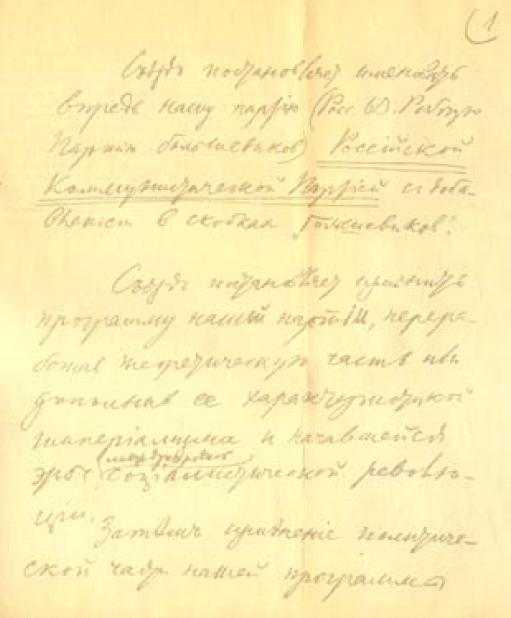 1
Съезд постановляет именовать
впредь нашу партию (Росс. С.-Д. Рабочую
Партию большевиков) Российской
Коммунистической Партией с доба-
влением в скобках „большевиков“.
Съезд постановляет изменить
программу нашей партии, перера-
ботав теоретическую часть или
дополнив ее характеристикой
империализма и начавшейся
международной
эры социалистической револю-
ции.
Затем изменение политиче-
ской части нашей программы